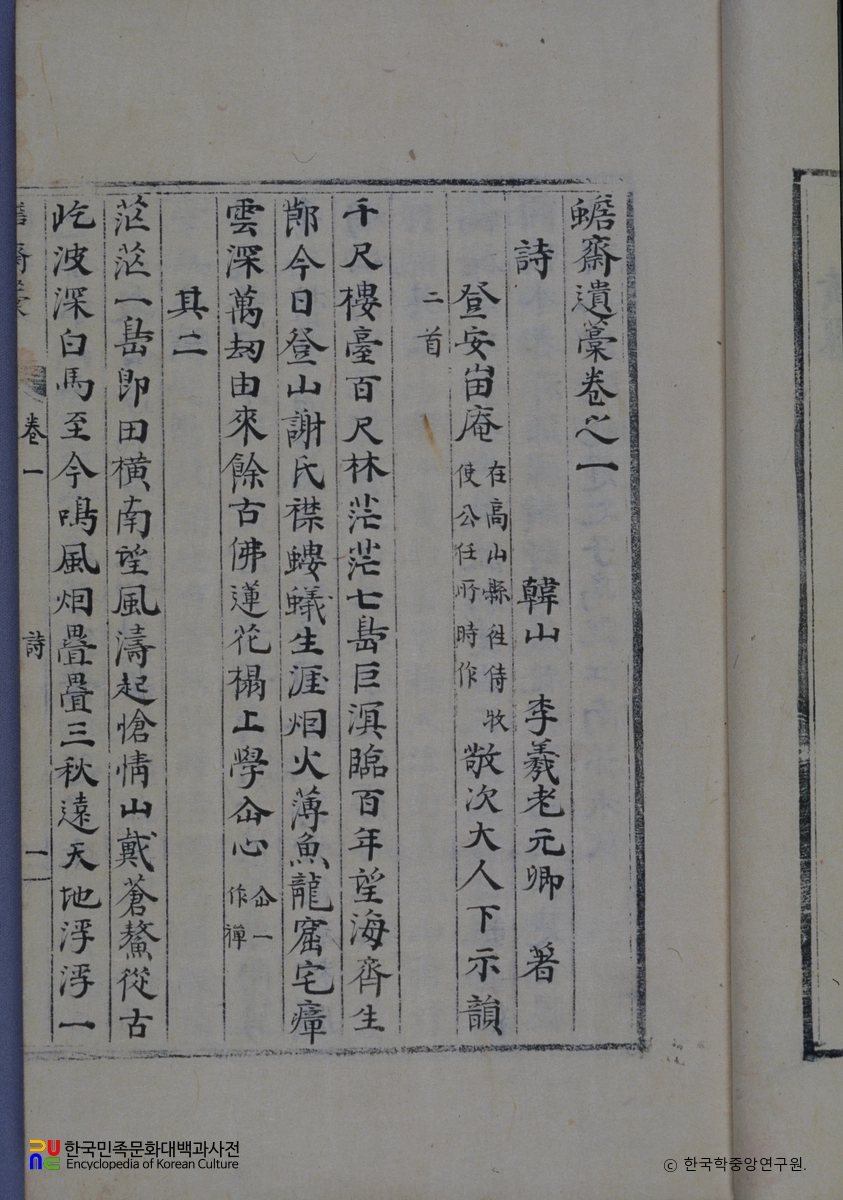 蟾齋遺藁卷之一
詩 韓山 李羲老元卿 著
登安峀庵 在高山縣往侍牧使公任所時作 敬次大人下示韻
二首
千尺樓臺百尺林茫茫七島巨溟臨百年望海齊生
郎今日登山謝氏襟螻蟻生涯烟火薄魚龍窟宅瘴
雲深萬劫由來餘古佛蓮花榻上學仚心 仚一作禪
其二
茫茫一島卽田橫南望風濤起愴情山戴蒼鰲從古
屹波深白馬至今鳴風烟疊疊三秋遠天地浮浮一
卷一 詩 一
한국민족문화대백과사전
Encyclopedia of Korean Culture
© 한국학중앙연구원.